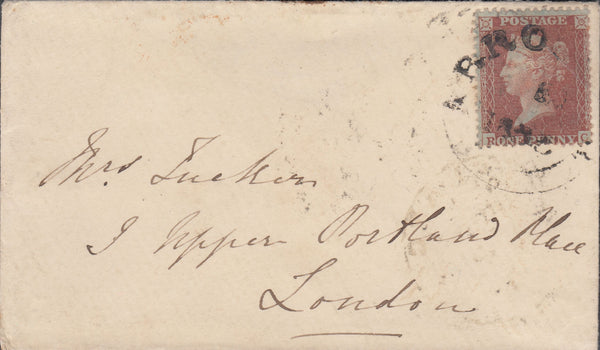 POSTAGE
ONE PENNY
Mrs Tucker
Upper Portland Place
London